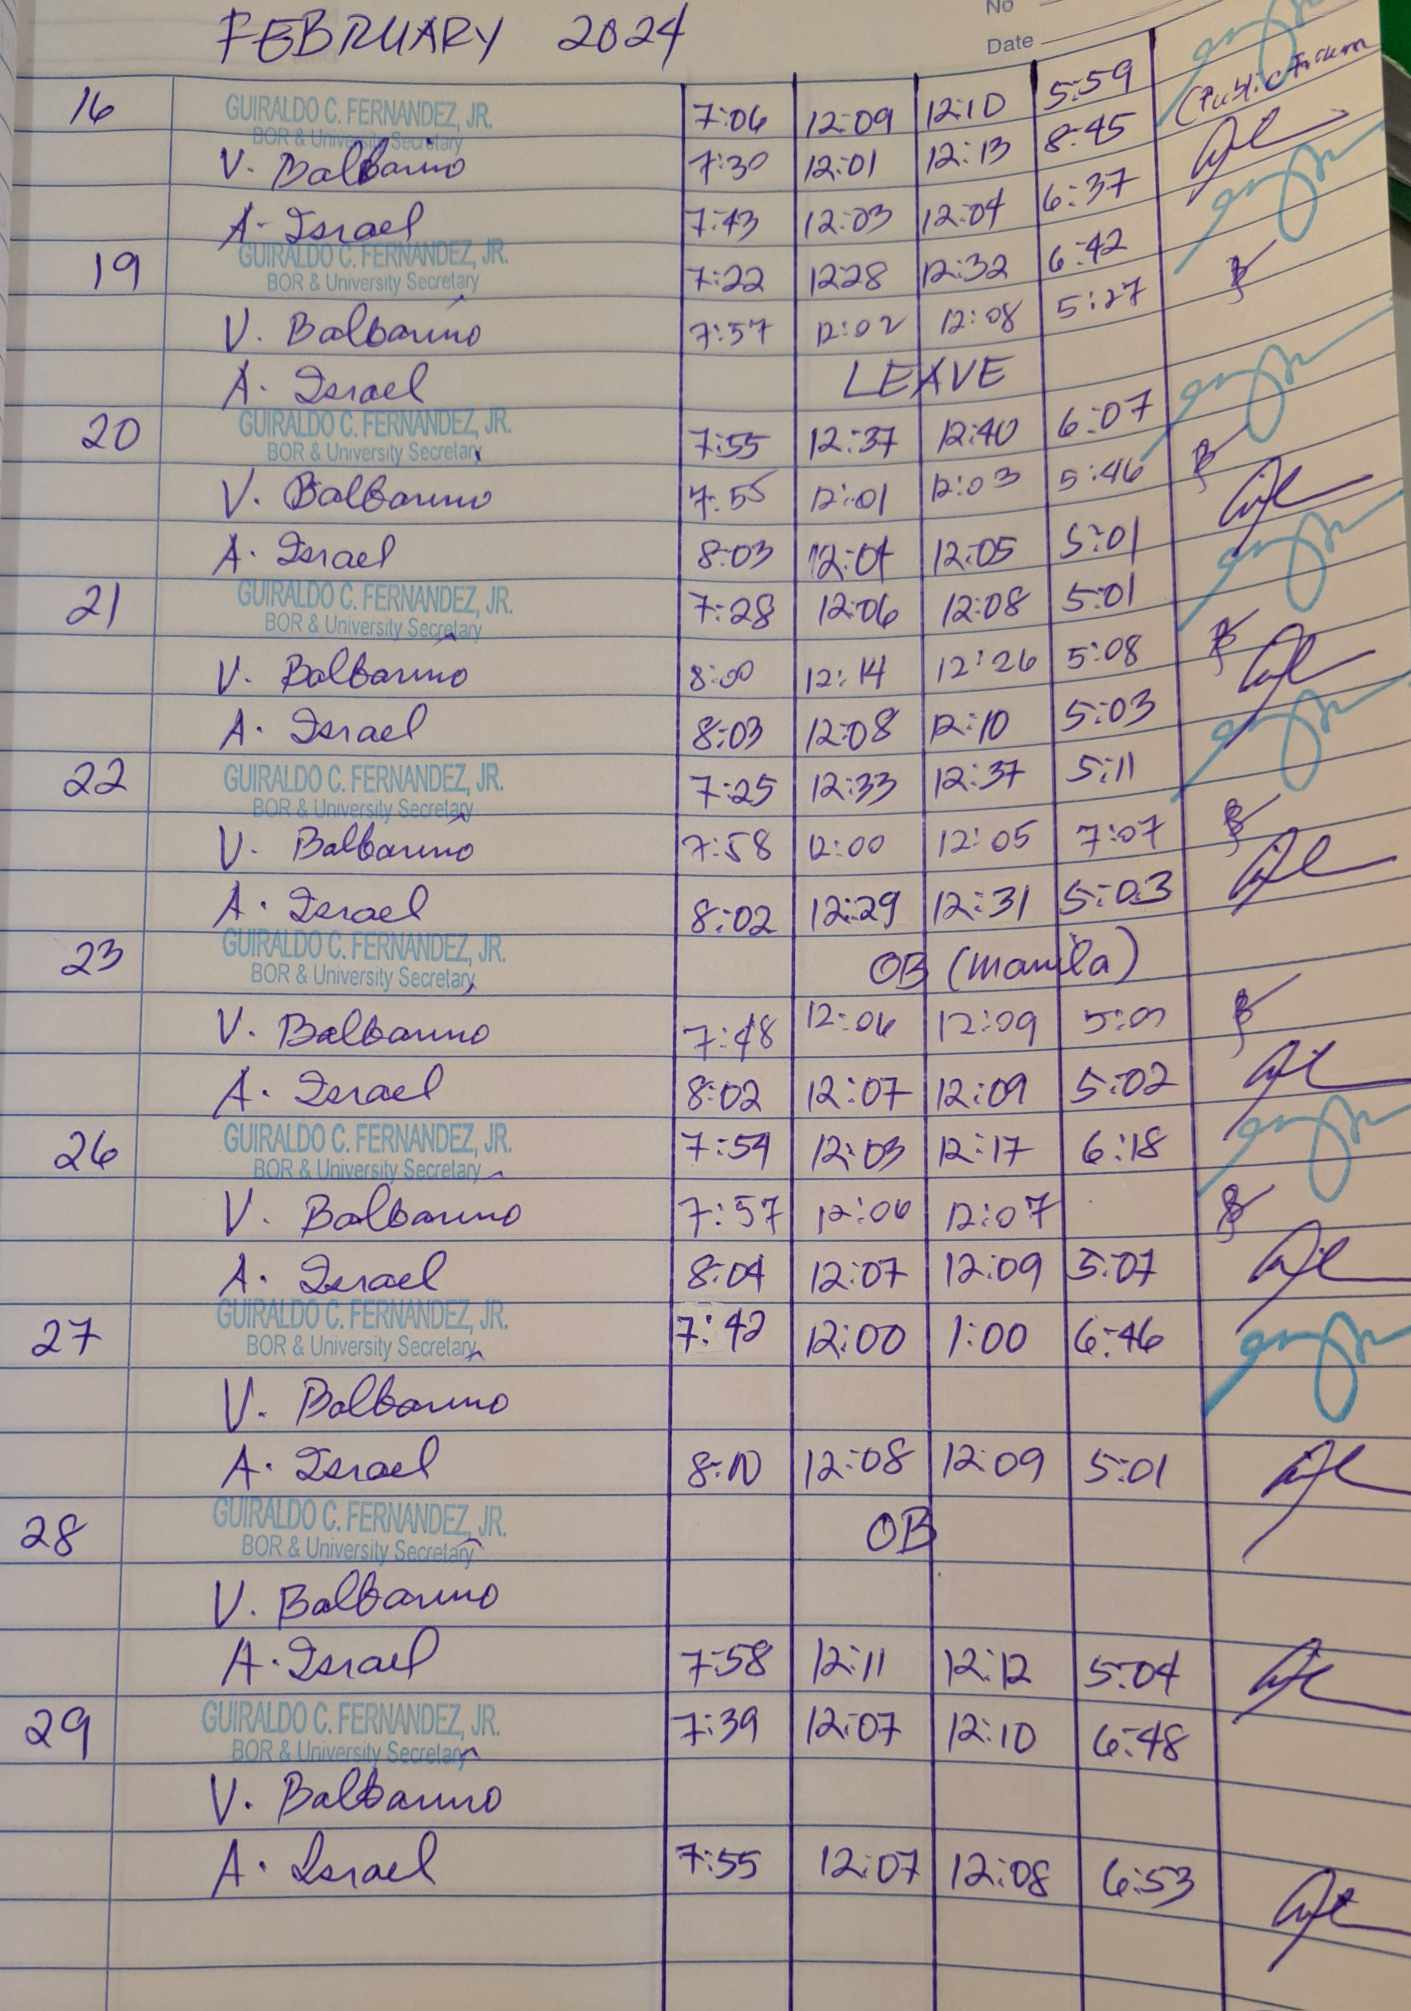 No
Date
FEBRUARY 2024
16 GUIRALDO C. FERNANDEZ, JR. 7:06 12:09 12:10 5:59
BOR & University Secretary
(Public Forum
V. Balbarino 7:30 12:01 12:13 8:45
A. Israel 7:43 12:03 12:04 6:37
19 GUIRALDO C. FERNANDEZ, JR. 7:22 1228 12:32 6:42
BOR & University Secretary
V. Balbarino 7:57 12:02 12:08 5:27
A. Israel LEAVE
20 GUIRALDO C. FERNANDEZ, JR. 7:55 12:37 12:40 6:07
BOR & University Secretary
V. Balbarino 7:55 12:01 12:03 5:46
A. Israel 8:03 12:04 12:05 5:01
21 GUIRALDO C. FERNANDEZ, JR. 7:28 12:06 12:08 5:01
BOR & University Secretary
V. Balbarino 8:00 12:14 12:26 5:08
A. Israel 8:03 12:08 12:10 5:03
22 GUIRALDO C. FERNANDEZ, JR. 7:25 12:33 12:37 5:11
BOR & University Secretary
V. Balbarino 7:58 12:00 12:05 7:07
A. Israel 8:02 12:29 12:31 5:03
23 GUIRALDO C. FERNANDEZ, JR. OB (Manila)
BOR & University Secretary
V. Balbarino 7:48 12:06 12:09
A. Israel 8:02 12:07 12:09 5:02
26 GUIRALDO C. FERNANDEZ, JR. 7:54 12:03 12:17 6:18
BOR & University Secretary
V. Balbarino 7:57 12:06 12:07
A. Israel 8:04 12:07 12:09 5:07
27 GUIRALDO C. FERNANDEZ, JR. 7:42 12:00 1:00 6:46
BOR & University Secretary
V. Balbarino
A. Israel 8:10 12:08 12:09 5:01
28 GUIRALDO C. FERNANDEZ, JR. OB
BOR & University Secretary
V. Balbarino
A. Israel 7:58 12:11 12:12 5:04
29 GUIRALDO C. FERNANDEZ, JR. 7:39 12:07 12:10 6:48
BOR & University Secretary
V. Balbarino
A. Israel 7:55 12:07 12:08 6:53